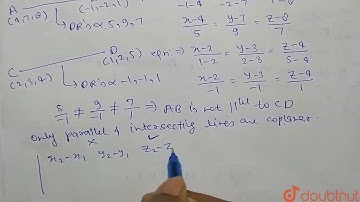 A
(4,7,8)
(-1,-2,1)
DR's ∝ 5, 9, 7
-1-4 -2-7 1-8
x-4/5 = y-7/9 = z-8/7
C D
(2,3,4) (1,2,5)
DR's ∝ -1,-1,1
eqn:⇒ x-2/1-2 = y-3/2-3 = z-4/5-4
x-2/-1 = y-3/-1 = z-4/1
5/-1 ≠ 9/-1 ≠ 7/1 ⇒ AB is not ||lel to CD
only parallel & intersecting lines are coplaner.
x2-x1 y2-y1 z2-z
doubtnut